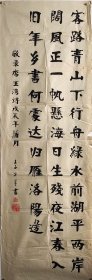 客路青山下行舟绿水前潮平两岸
阔风正一帆悬海日生残夜江春入
旧年乡书何处达归雁洛阳边
敬录唐王湾诗戊戌年